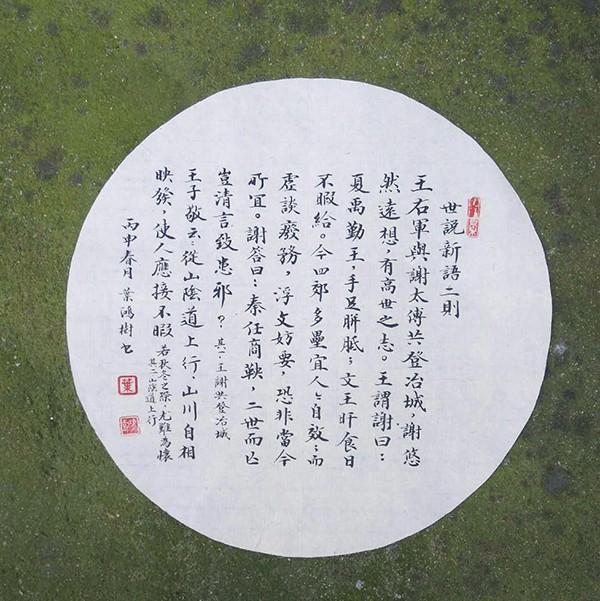 世說新語二則
王右軍與謝太傅共登冶城，謝悠
然遠想，有高世之志。王謂謝曰：
夏禹勤王，手足胼胝；文王旰食日
不暇給。今四郊多壘宜人人自效；而
虛談廢務，浮文妨要，恐非當今
所宜。謝答曰：秦任商鞅，二世而亡
豈清言致患邪？其一：王謝共登冶城
王子敬云：從山陰道上行，山川自相
映發，使人應接不暇
若秋冬之際，尤難為懷
其二山陰道上行
丙申春月 葉鴻樹書
葉